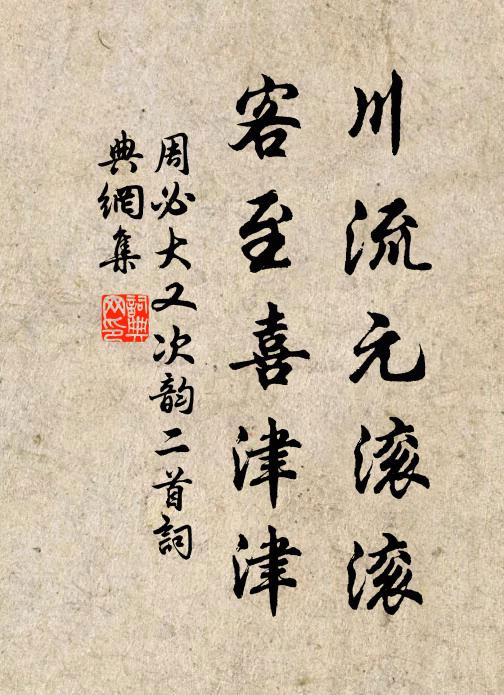 川流元滚滚
客至喜津津
周必大又次韵二首詞
典網集
詞典网印